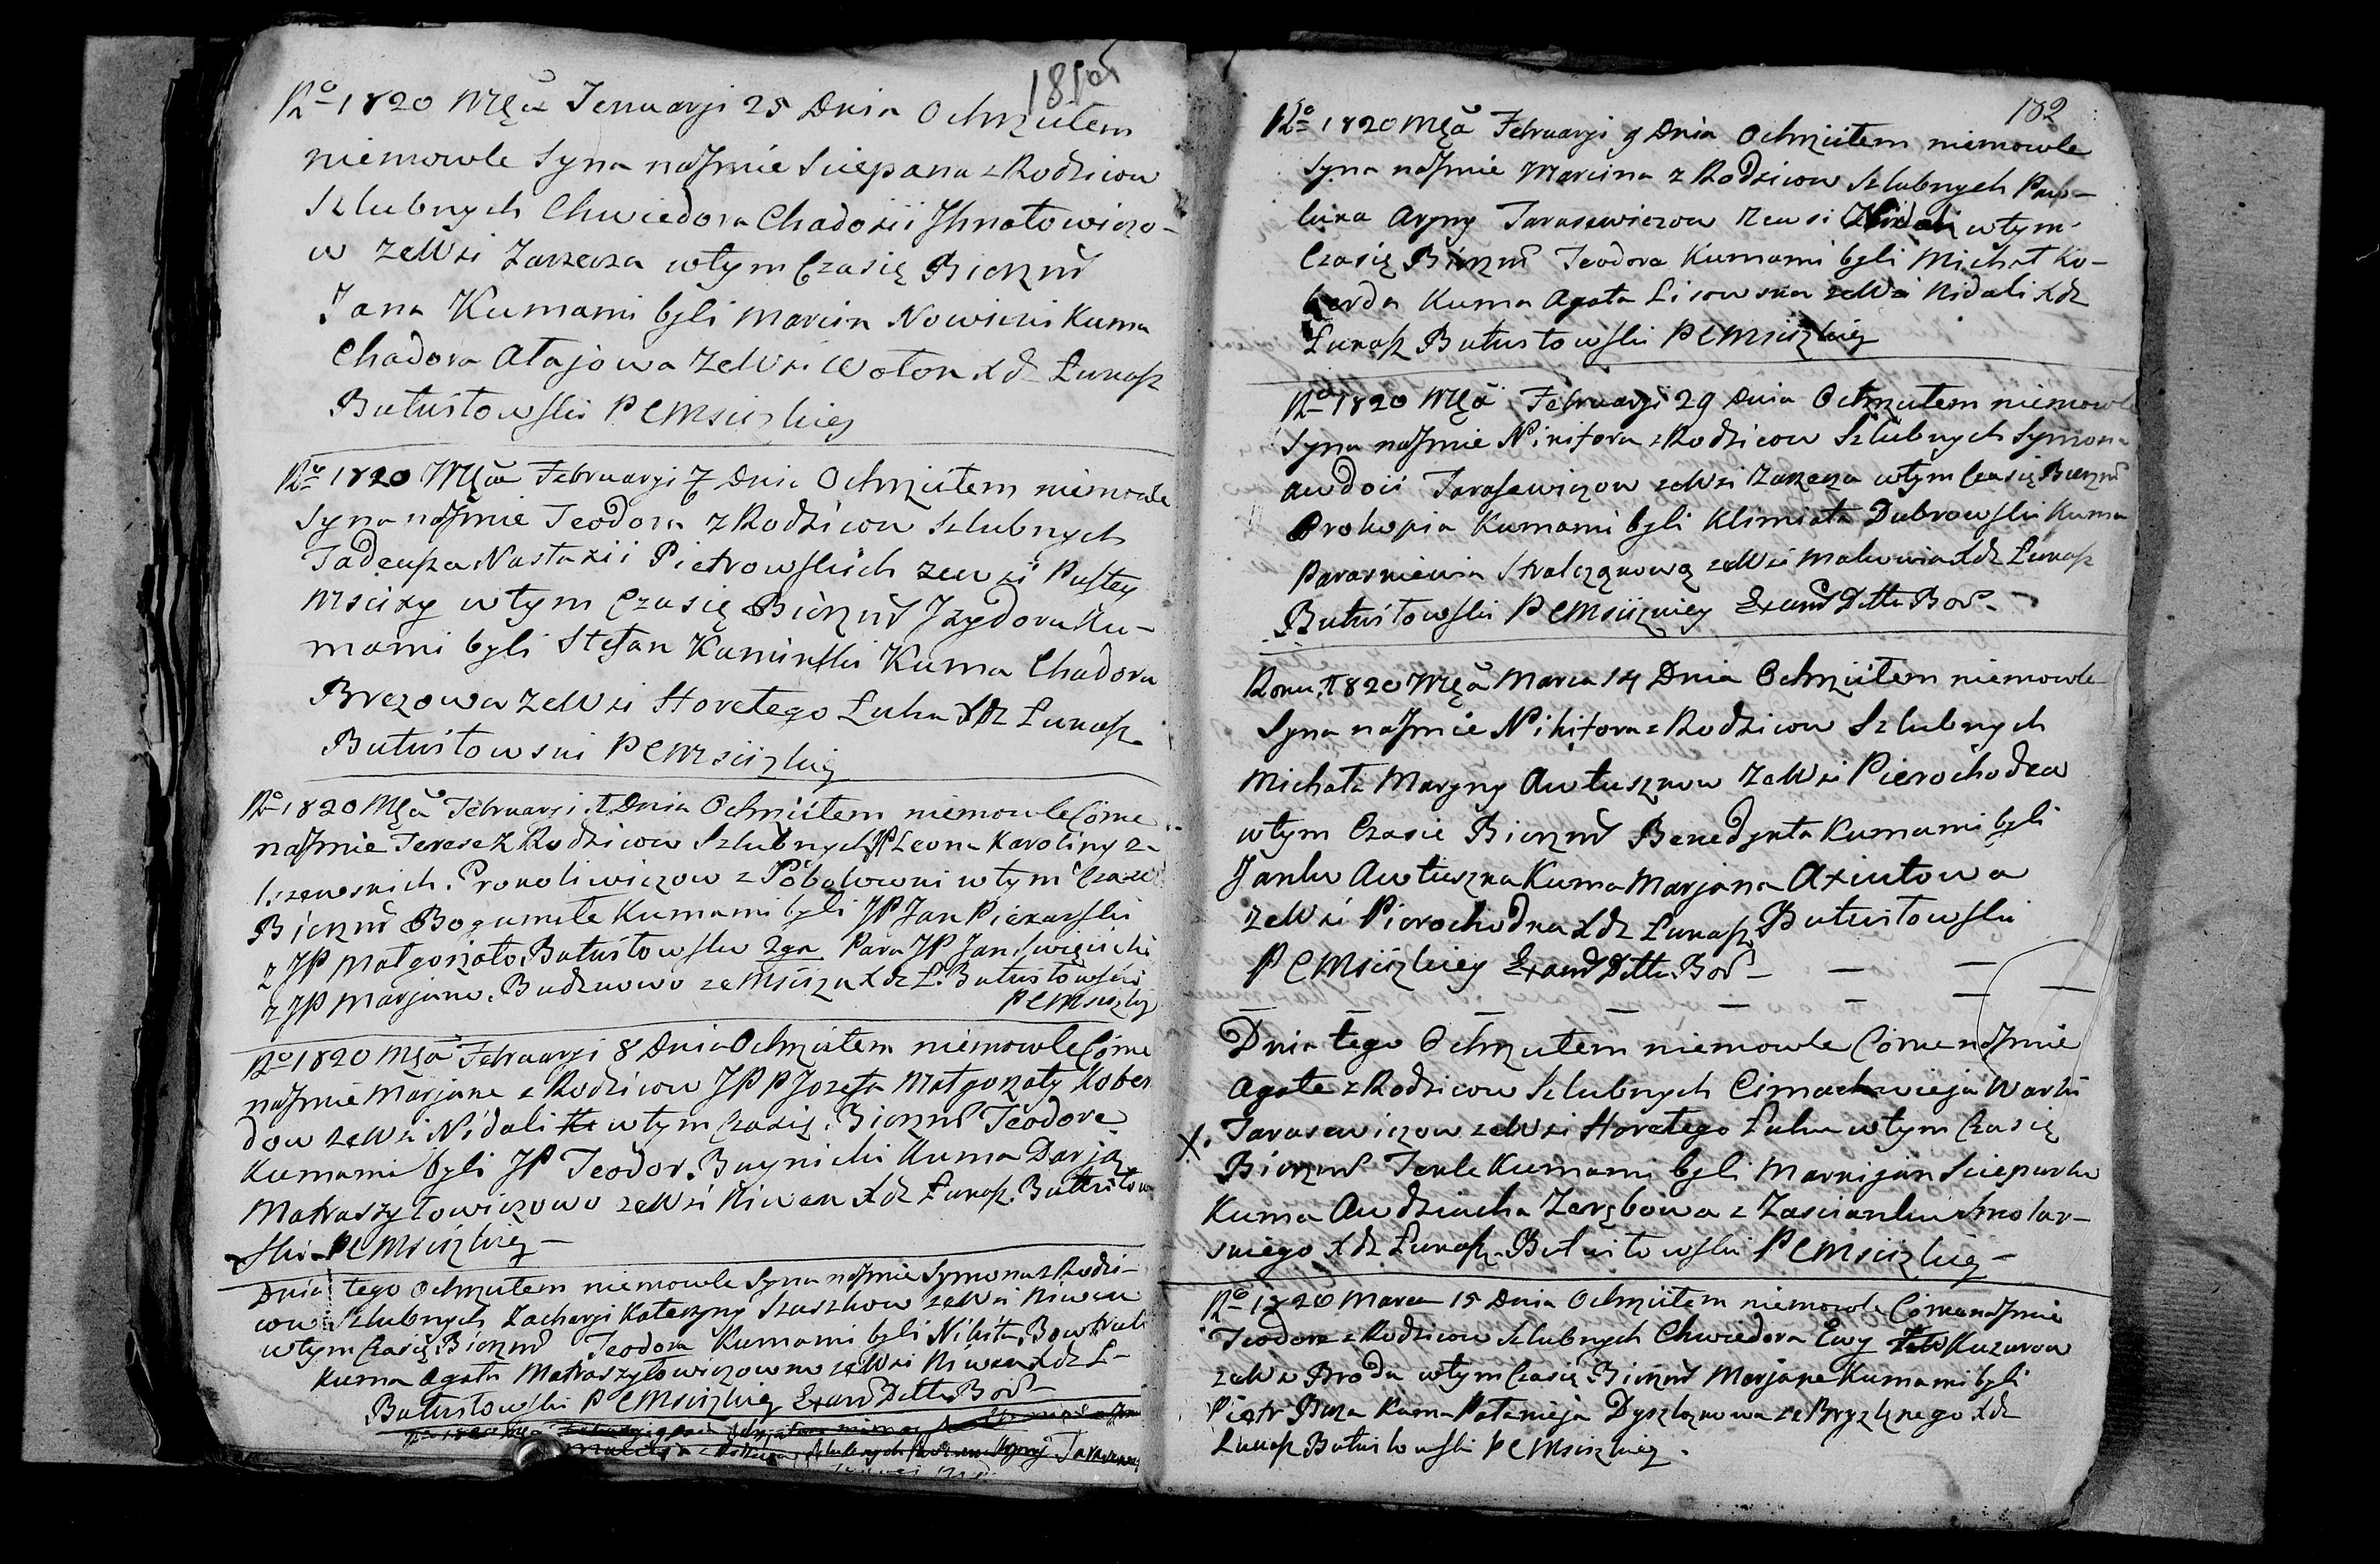 181
Ro 1820 Mca Jenuarji 25 Dnia Ochrzciłem
niemowle Syna naJmie Sciepana z Rodzicow
Szlubnych Chwiedora Chadoxii Jhnatowiczo-
w ze Wsi Zarzecza wtym Czasię Bierzm
Jana Kumami byli Marcin Nowicki Kuma
Chadora Atajowa ze Wsi Wołok Xd Łukasz
Butustowski P C Msciżskiey
Ro 1820 Mca Februarji 7 Dnia Ochrzciłem niemowle
Syna naJmie Teodora z Rodzicow Szlubnych
Tadeusza Nastazii Pietrowskich ze wsi Pustey
Mscizy wtym Czasię Bierzm Jzydora Ku-
mami byli Stefan Kaminski Kuma Chadora
Brezowa ze Wsi Horełego Łuha Xdz Łukasz
Butustowski P C Msciżskiey
Ro 1820 Mca Februarji Dnia Ochrzciłem niemowle Córke
naJmie Terese z Rodzicow Szlubnych JP Leona Karoliny z
Prokoliwiczow z wtym Czasie
Bierzm Bogumiłe Kumami byli JP Jan Piekarski
z JP Małgorzato Butustowsku 2ga Para JP Jan Swięcicki
z JP Marjano Budzkowo ze Msciża Xdz Ł. Butustowski
P C Msciżskiey
Ro 1820 Mca Februarji 8 Dnia Ochrzciłem niemowle Córke
naJmie Marjane z Rodzicow JPP Jozefa Małgorzaty Kober
dow ze Wsi Nidali wtym Czasię Bierzm Teodore
Kumami byli JP Teodor Buynicki Kuma Darja
Matraszyłowiczowo ze Wsi Niwek Xdz Łukasz Butustow
ski P C Msciżskiey
Dnia tego Ochrzciłem niemowle Syna naJmie Symona z Rodzi-
cow Szlubnych Zacharji Kateryny Szuszkow ze Wsi Niwek
wtym Czasię Bierzm Teodora Kumami byli Nikita Bowtruk
Kuma Agata Matraszyłowiczowna ze Wsi Niwek Xdz Ł-
Butustowski P C Msciżskiey Exand Detta Bor
182
Ro 1820 Mca Februarji 9 Dnia Ochrzciłem niemowle
Syna naJmie Marcina z Rodzicow Szlubnych Paw-
luka Aryny Tarasewiczow ze wsi Nidali wtym
Czasię Bierzm Teodora Kumami byli Michał Ko-
berda Kuma Agata Lisowska ze Wsi Nidali Xdz
Łukasz Butustowski P C Msciżskiey
Ro 1820 Mca Februarji 29 Dnia Ochrzciłem niemowle
Syna naJmie Nikifora z Rodzicow Szlubnych Symona
Awdoii Tarasewiczow ze Wsi Zarzecza wtym Czasię Bierzm
Prokopia Kumami byli Klimiata Dubrowski Kuma
Paraskiewia Stralczonkową ze Wsi Xdz Łukasz
Butustowski P C Msciżskiey Exand Detta Bor
Roku 1820 Mca Marca 14 Dnia Ochrzciłem niemowle
Syna naJmie Nikifora z Rodzicow Szlubnych
Michała Maryny Awtuszkow ze Wsi Pierochodka
wtym Czasie Bierzm Benedykta Kumami byli
Janku Awtuszka Kuma Marjana Axiutowa
ze Wsi Pierochodka Xdz Łukasz Butustowski
P C Msciżskiey Exand Detta Bor
Dnia tego Ochrzciłem niemowle Córke naJmie
Agate z Rodzicow Szlubnych Cimachwieja Warki
X. Tarasewiczow ze Wsi Horełego Łuha wtym Czasię
Bierzm Tekle Kumami byli Markijan Sciepurka
Kuma Awdziucha Zerębowa z Zascianku Smolar-
skiego Xdz Łukasz Butustowski P C Msciżskiey
Ro 1820 Marca 15 Dnia Ochrzciłem niemowle Córke naJmie
Teodore z Rodzicow Szlubnych Chwiedora Ewy Kuzurow
ze Wsi Broda wtym Czasię Bierzm Marjane Kumami byli
Piotr Buza Kuma Połanieja Dyszlonkowa Xdz
Łukasz Butustowski P C Msciżskiey